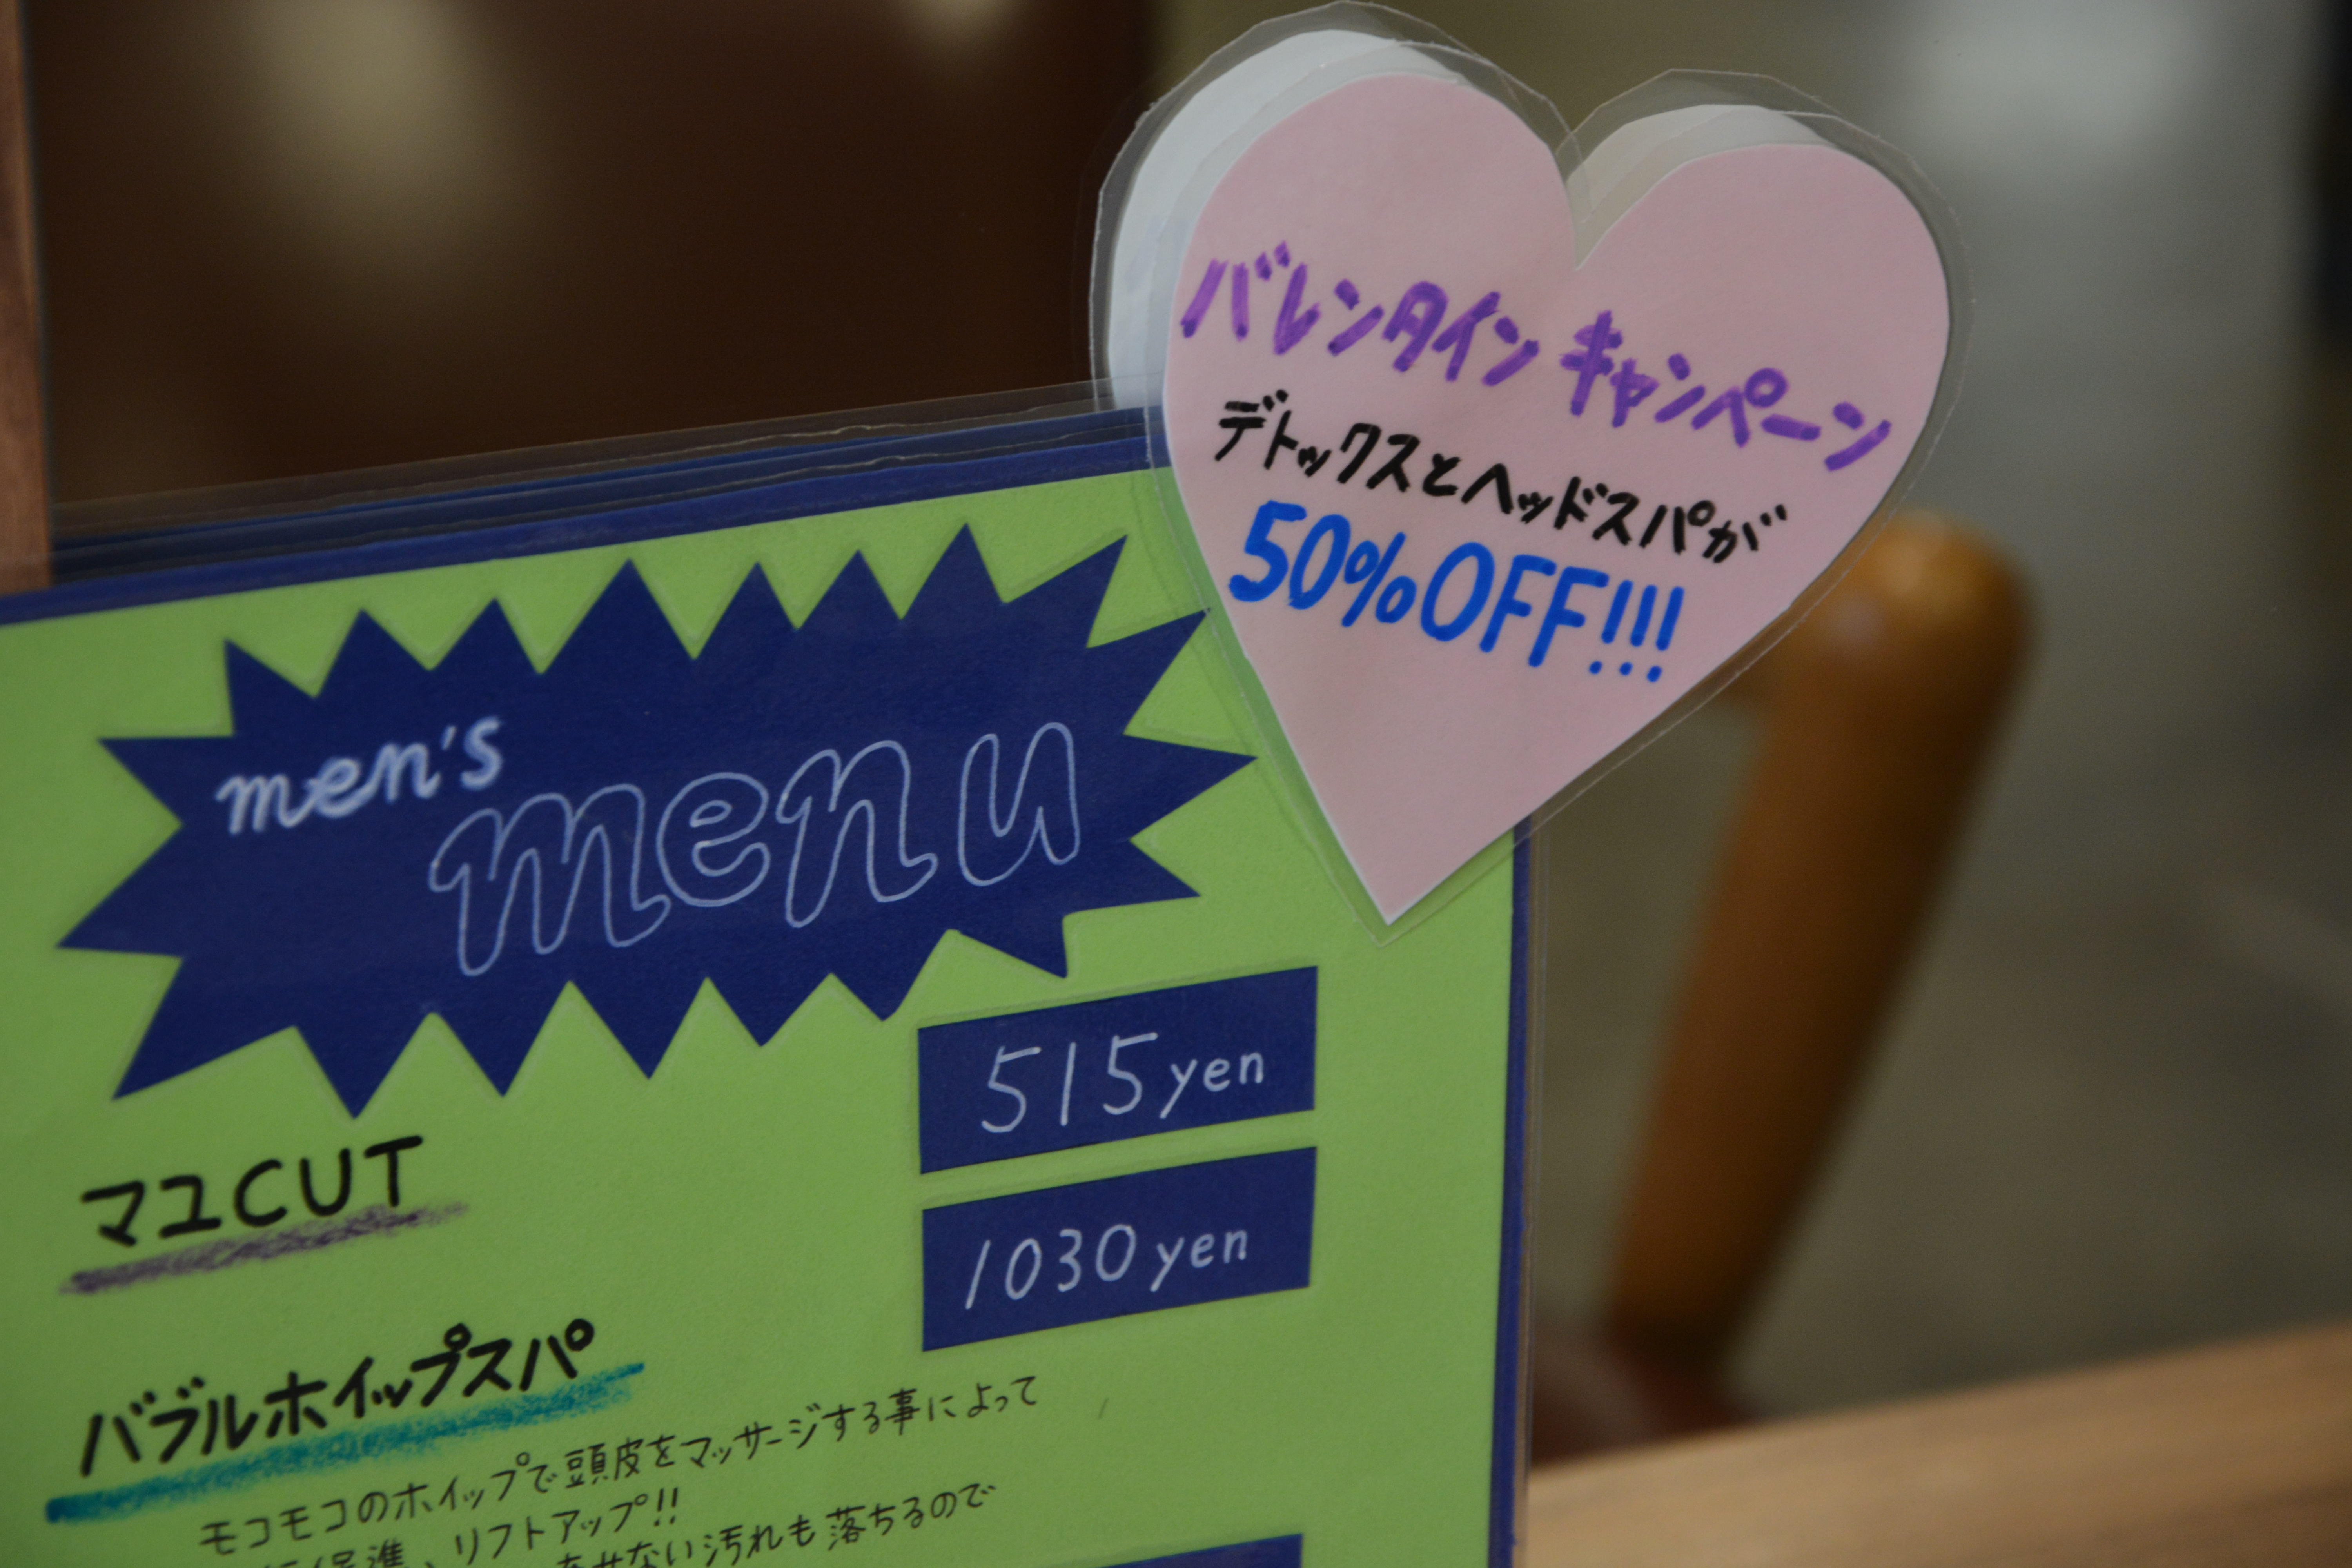 バレンタイン キャンペーン
デトックスとヘッドスパが
50%OFF!!!
men's
menu
マユCUT
515yen
1030yen
バブルホイップスパ
モコモコのホイップで頭皮をマッサージする事によって
促進、リフトアップ!!
ない汚れも落ちるので